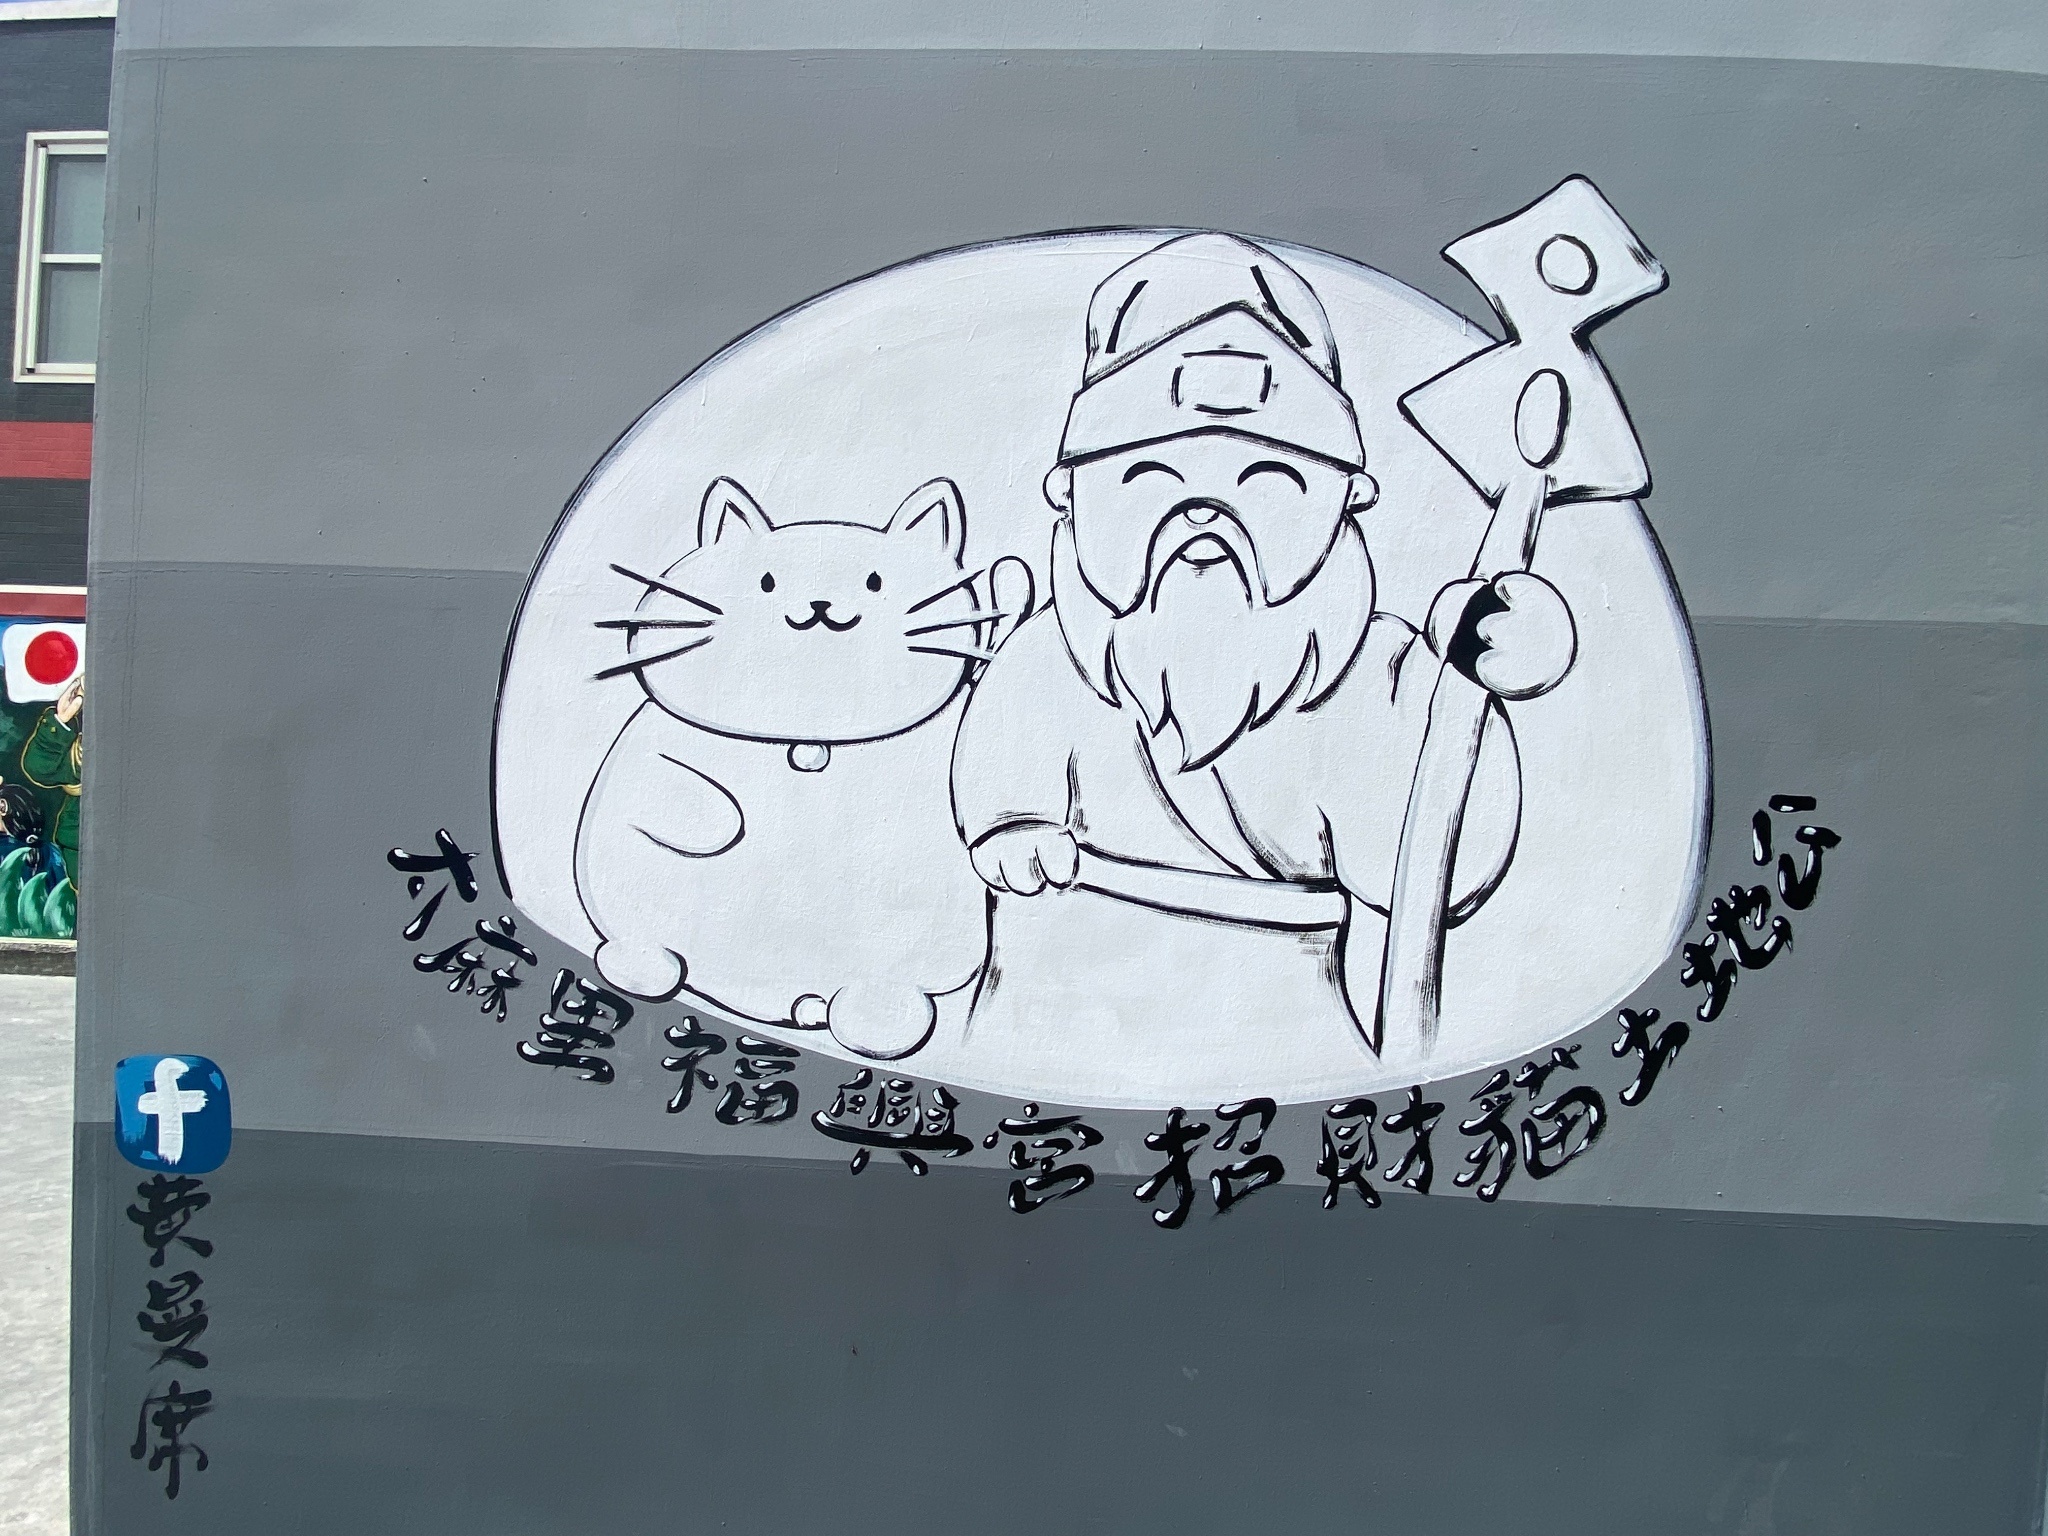 太麻里福興宮招財貓土地公
f
黃曼席